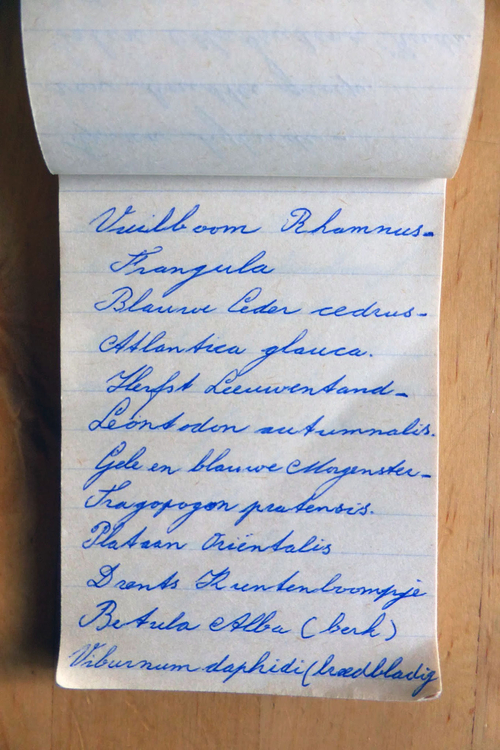 Vuilboom Rhamnus-
Frangula
Blauwe Ceder cedrus-
Atlantica glauca.
Herfst Leeuwentand-
Leontodon autumnalis.
Gele en blauwe Morgenster-
Tragopogon pratensis.
Plataan Oriëntalis
Drents Krentenboompje
Betula Alba (berk)
Viburnum daphidi (